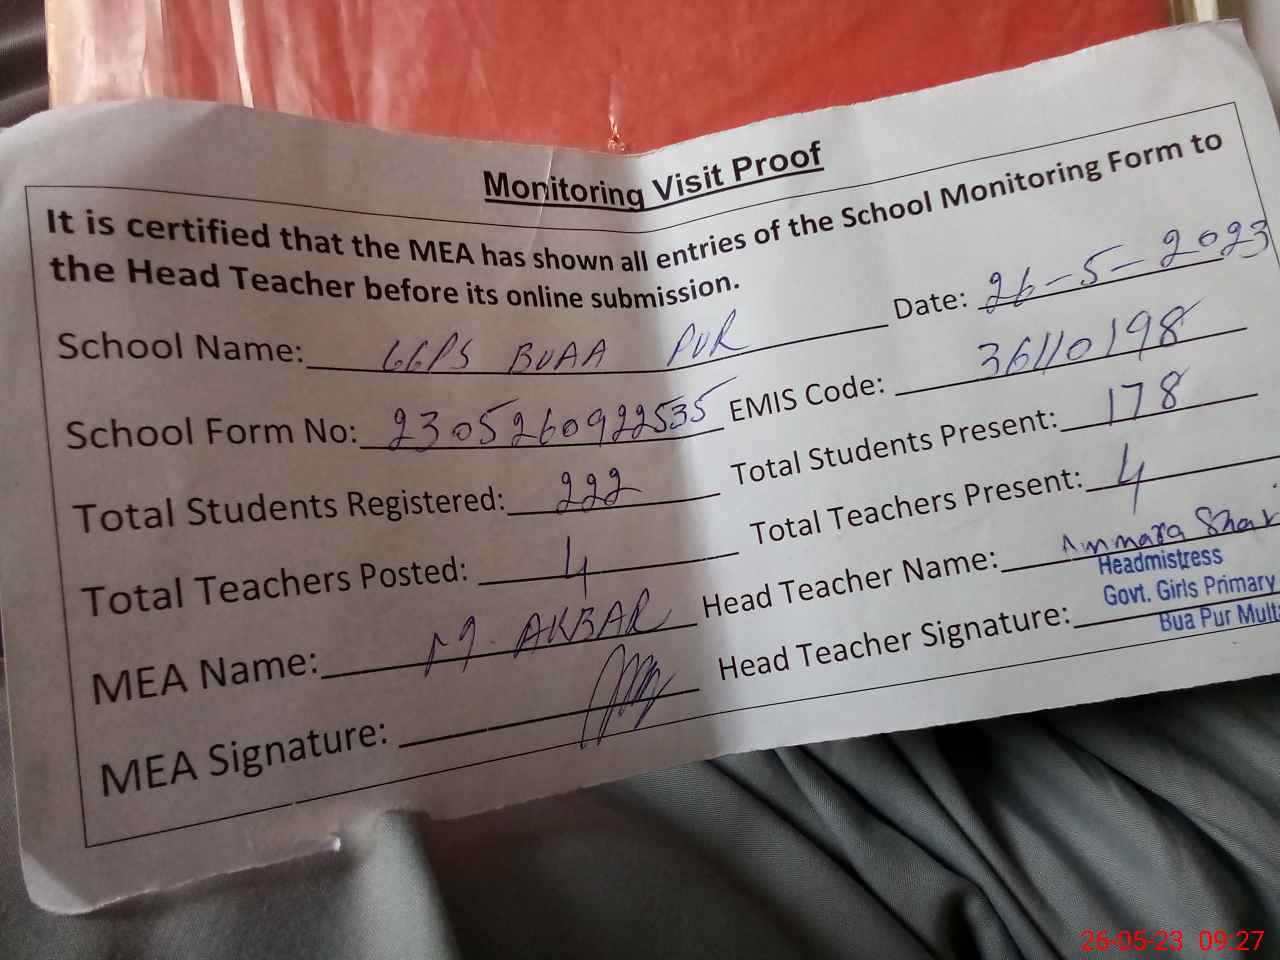 Monitoring Visit Proof
It is certified that the MEA has shown all entries of the School Monitoring Form to
the Head Teacher before its online submission.
Date: 26-5-2023
School Name: GGPS BUAA PUR
EMIS Code: 36110198
School Form No: 2305260922535
Total Students Present: 178
Total Students Registered: 222
Total Teachers Present: 4
Total Teachers Posted: 4
Head Teacher Name: Ammara
Headmistress
Govt. Girls Primary
Bua Pur
MEA Name: M. AKBAR
Head Teacher Signature:
MEA Signature:
26-05-23 09:27